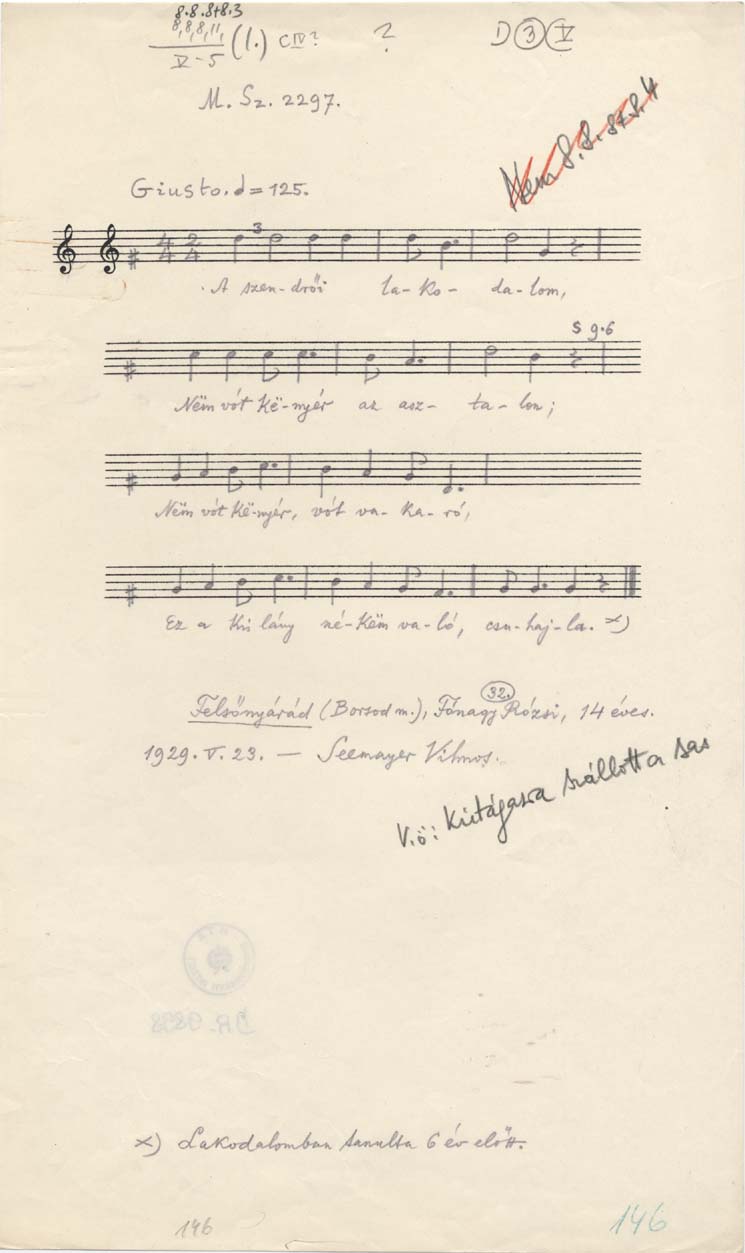 8.8.8+8.3
8,8,8,11, (1.) CIV? ? D 3 V
V-5
M. Sz. 2297.
Nem 8.8.8+8.4
Giusto. = 125.
4/4 2/4 3
A szen-drői la-ko-da-lom,
S 9.6
Nëm vót kë-nyér az asz-ta-lon;
Nëm vót kë-nyér, vót va-ka-ró,
Ez a kis lány né-këm va-ló, csu-haj-la. x)
32.
Felsőnyárád (Borsod m.), Fónagy Rózsi, 14 éves.
1929. V. 23. — Seemayer Vilmos.
V.ö: Kútágasra szállott a sas
x) Lakodalomban tanulta 6 év előtt.
146 146